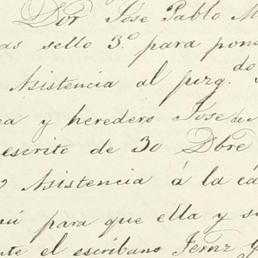 Por Jose Pablo M
as sello 3.º para pone
Asistencia al juzg.do
ea y heredero Jose de
escrito de 30 Dbre
Asistencia á la ca
para que ella y su
nte el escribano Fernz y